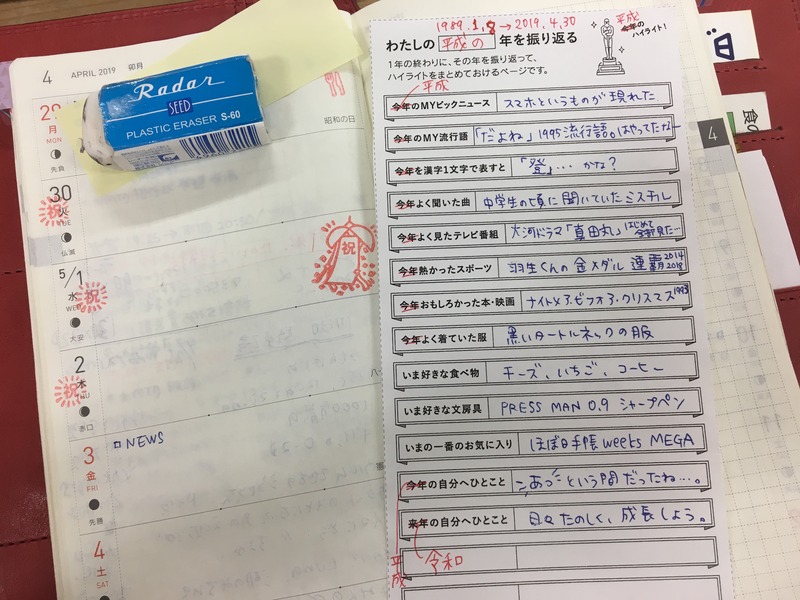 4 APRIL 2019 卯月
29
月
MON
先負
昭和の日
30
火
TUE
仏滅
祝
5/1
水
WED
大安
祝
祝
2
木
THU
赤口
祝
3
金
FRI
先勝
NEWS
4
土
SAT
Radar
SEED
PLASTIC ERASER S-60
1989.1.8→2019.4.30
わたしの 平成の 年を振り返る
平成
今年のハイライト!
1年の終わりに、その年を振り返って、
ハイライトをまとめておけるページです。
平成
今年のMYビックニュース スマホというものが現れた
今年のMY流行語 「だよね」1995流行語。はやってたなー
今年を漢字1文字で表すと 「登」…かな?
今年よく聞いた曲 中学生の頃に聞いていたミスチル
今年よく見たテレビ番組 大河ドラマ「真田丸」はじめて全部見た…
今年熱かったスポーツ 羽生くんの金メダル連覇 2014 2018
今年おもしろかった本・映画 ナイトメア.ビフォア.クリスマス 1993
今年よく着ていた服 黒いタートルネックの服
いま好きな食べ物 チーズ、いちご、コーヒー
いま好きな文房具 PRESS MAN 0.9 シャープペン
いまの一番のお気に入り ほぼ日手帳weeks MEGA
今年の自分へひとこと あっという間だったね…。
来年の自分へひとこと 日々たのしく、成長しよう。
平成
令和
4
食の